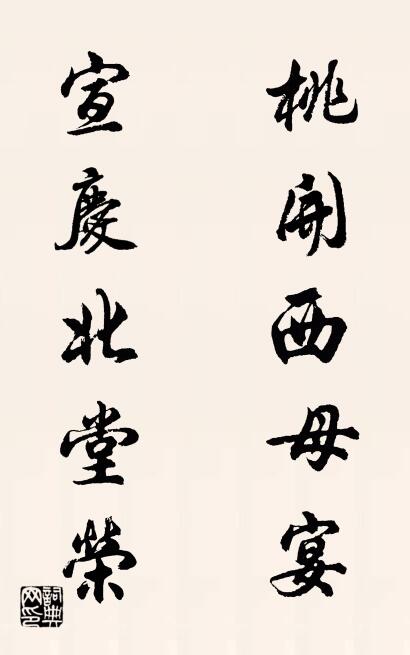 桃開西母宴
宣慶北堂榮
詞典網印